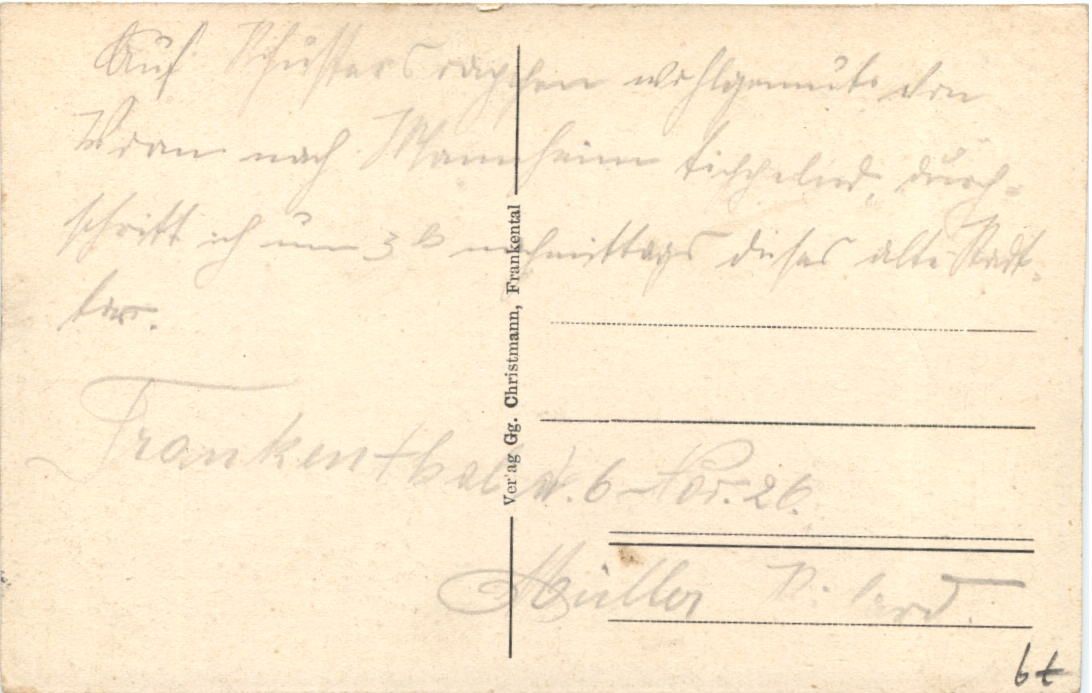 Auf Schusters rappen wohlgemuts von
Worms nach Mannheim tippelnd, durch-
schritt ich um 3 h nachmittags dieses alte Stadt-
tor.
Frankenthal d. 6 Nov. 26.
Müller Richard.
Verlag Gg. Christmann, Frankental
6t